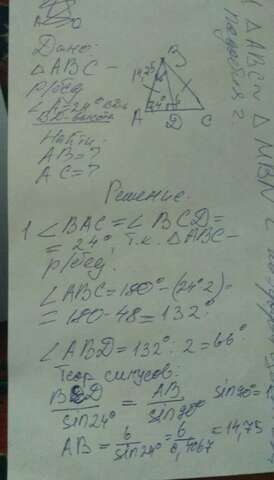 Дано:
△ABC –
р/бед
∠A=24°
BD-высота
Найти:
AB=?
AC=?
B
14,75
24°
A
D
C
Решение.
1 ∠BAC = ∠BCD =
= 24°, т.к. △ABC –
р/бед.
∠ABC=180°-(24°·2)
= 180-48=132°
∠ABD=132°:2=66°
Теор синусов:
BD/sin24° = AB/sin90°
AB = 6/sin24° = 6/0,4067 = 14,75
△ABC ~ △MBN